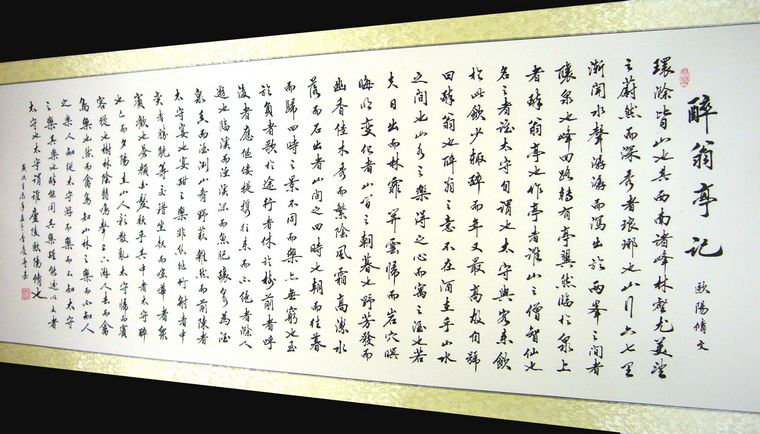 醉翁亭記 歐陽脩文
環滁皆山也其西南諸峰林壑尤美望
之蔚然而深秀者琅琊也山行六七里
漸聞水聲潺潺而瀉出於兩峯之間者
釀泉也峰回路轉有亭翼然臨於泉上
者醉翁亭也作亭者誰山之僧智仙也
名之者誰太守自謂也太守與客來飲
於此飲少輒醉而年又最高故自號
曰醉翁也醉翁之意不在酒在乎山水
之間也山水之樂得之心而寓之酒也若
夫日出而林霏開雲歸而岩穴暝
晦明變化者山間之朝暮也野芳發而
幽香佳木秀而繁陰風霜高潔水
落而石出者山間之四時也朝而往暮
而歸四時之景不同而樂亦無窮也至
於負者歌於途行者休於樹前者呼
後者應傴僂提攜往來而不絕者滁人
遊也臨溪而漁溪深而魚肥釀泉為酒
泉香而酒洌山肴野蔌雜然而前陳者
太守宴也宴酣之樂非絲非竹射者中
弈者勝觥籌交錯坐起而諠譁者眾
賓歡也蒼顏白髮頹乎其中者太守醉
也已而夕陽在山人影散亂太守歸而賓
客從也樹林陰翳鳴聲上下遊人去而禽
鳥樂也然而禽鳥知山林之樂而不知人
之樂人知從太守遊而樂而不知太守
之樂其樂也醉能同其樂醒能述以文者
太守也太守謂誰廬陵歐陽脩也